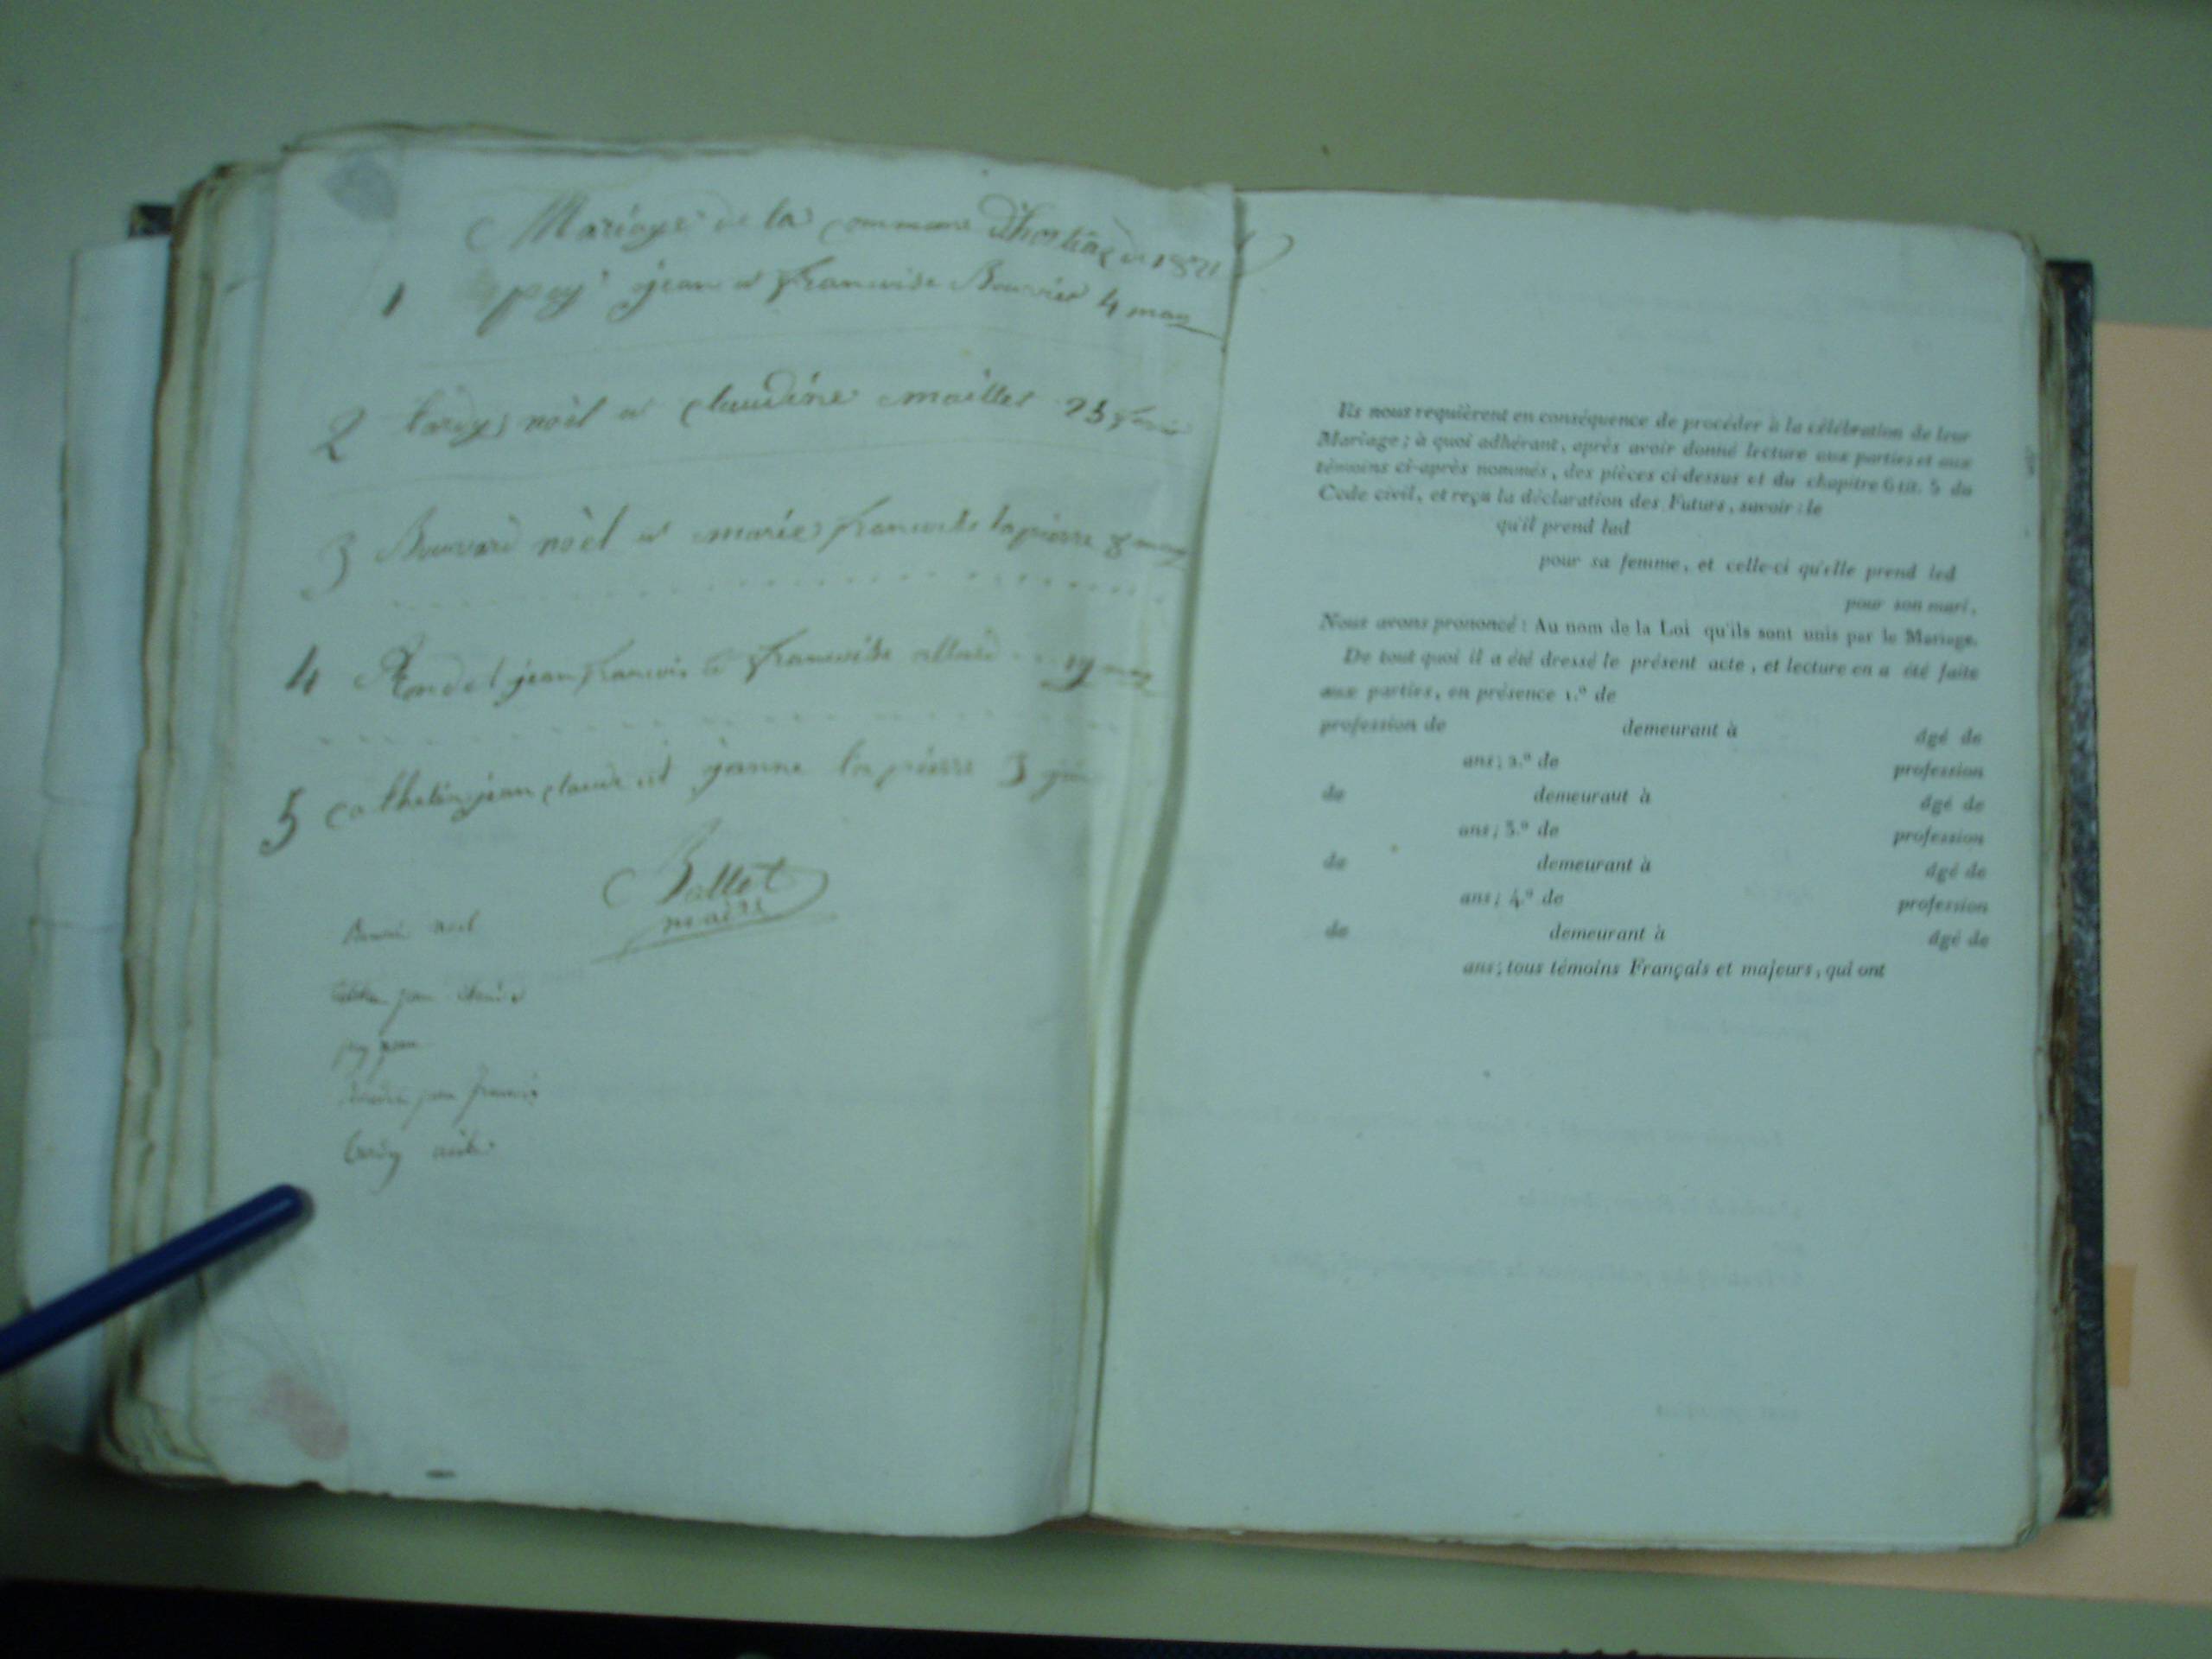 Mariage de la commune d'hostiaz de 1821
1 puy jean et francoise Bouvier 4 may
2 tardy noèl et claudine maillet 23
3 Bouvard noèl et marie francoise lapierre 8 may
4 Rondet jean francois et francoise allard 19 may
5 Cathelin jean claude et janne lapierre 3
Ballet
maire
noel
jean claude
puy jean
jean francois
Ils nous requièrent en conséquence de procéder à la célébration de leur
Mariage ; à quoi adhérant, après avoir donné lecture aux parties et aux
témoins ci-après nommés, des pièces ci-dessus et du chapitre 6 tit. 5 du
Code civil, et reçu la déclaration des Futurs, savoir : le
qu'il prend lad
pour sa femme, et celle-ci qu'elle prend led
pour son mari,
Nous avons prononcé : Au nom de la Loi qu'ils sont unis par le Mariage.
De tout quoi il a été dressé le présent acte, et lecture en a été faite
aux parties, en présence 1.º de
profession de demeurant à âgé de
ans ; 2.º de profession
de demeurant à âgé de
ans ; 3.º de profession
de demeurant à âgé de
ans ; 4.º de profession
de demeurant à âgé de
ans ; tous témoins Français et majeurs, qui ont